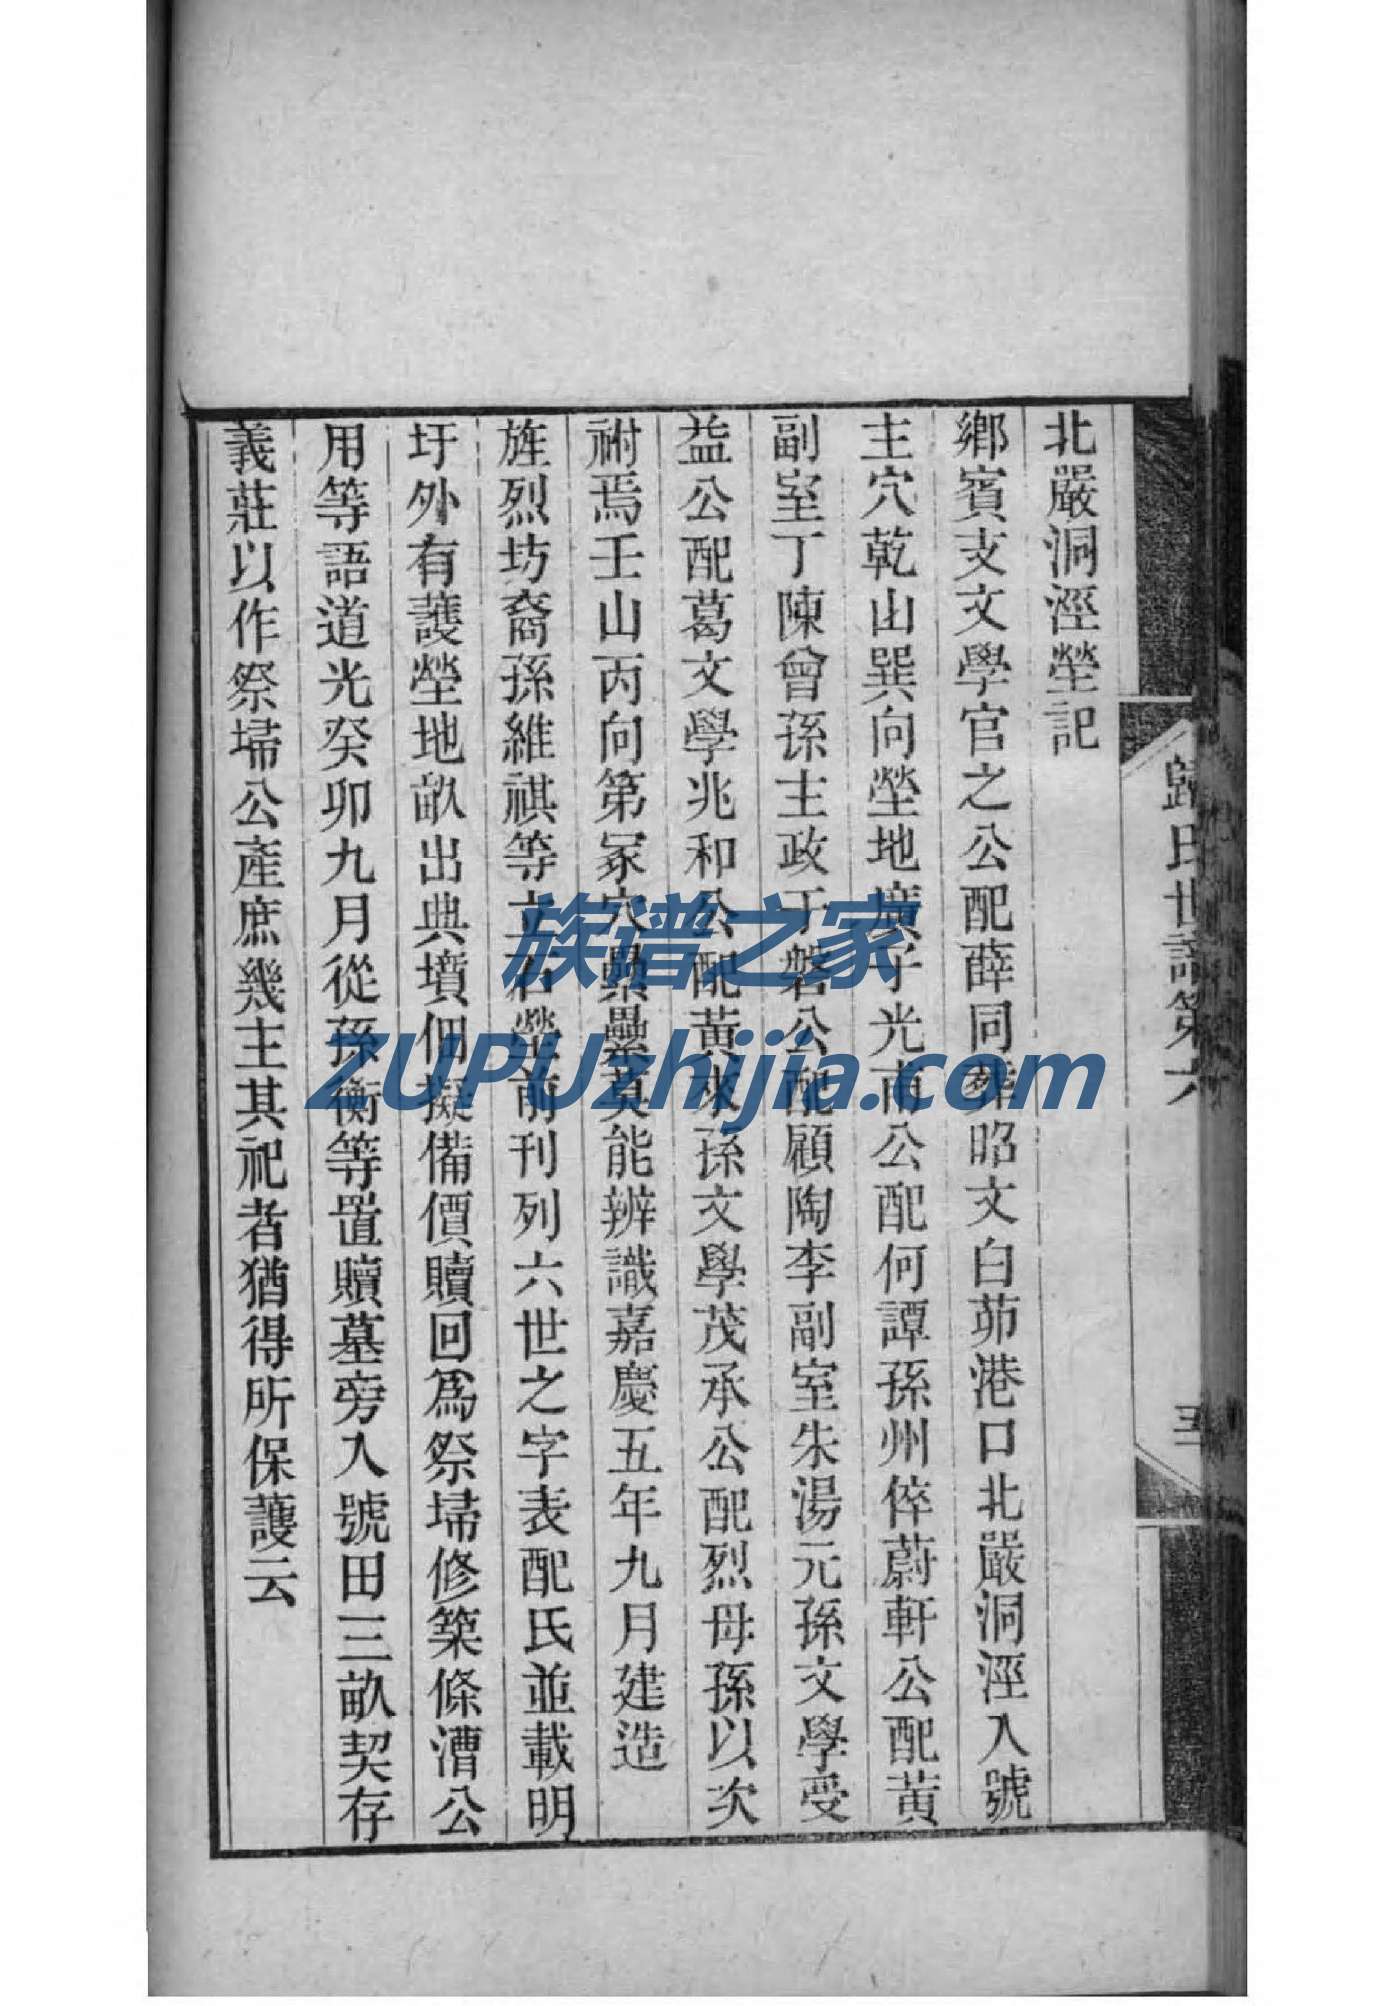 北嚴洞涇塋記
鄉賓支文學官之公配薛同葬昭文白茆港口北嚴洞涇入號
主穴乾山巽向塋地廣子光南公配何譚孫州倅蔚軒公配黃
副室丁陳曾孫主政于磐公配顧陶李副室朱湯元孫文學受
益公配葛文學兆和公配黃來孫文學茂承公配烈母孫以次
祔焉壬山丙向第冢穴纍纍莫能辨識嘉慶五年九月建造
旌烈坊裔孫維祺等立石塋前刊列六世之字表配氏並載明
圩外有護塋地畝出典墳佃擬備價贖回爲祭埽修築條漕公
用等語道光癸卯九月從孫衡等置贖墓旁入號田三畝契存
義莊以作祭埽公產庶幾主其祀者猶得所保護云
歸氏世譜第六
族谱之家
ZUPUzhijia.com